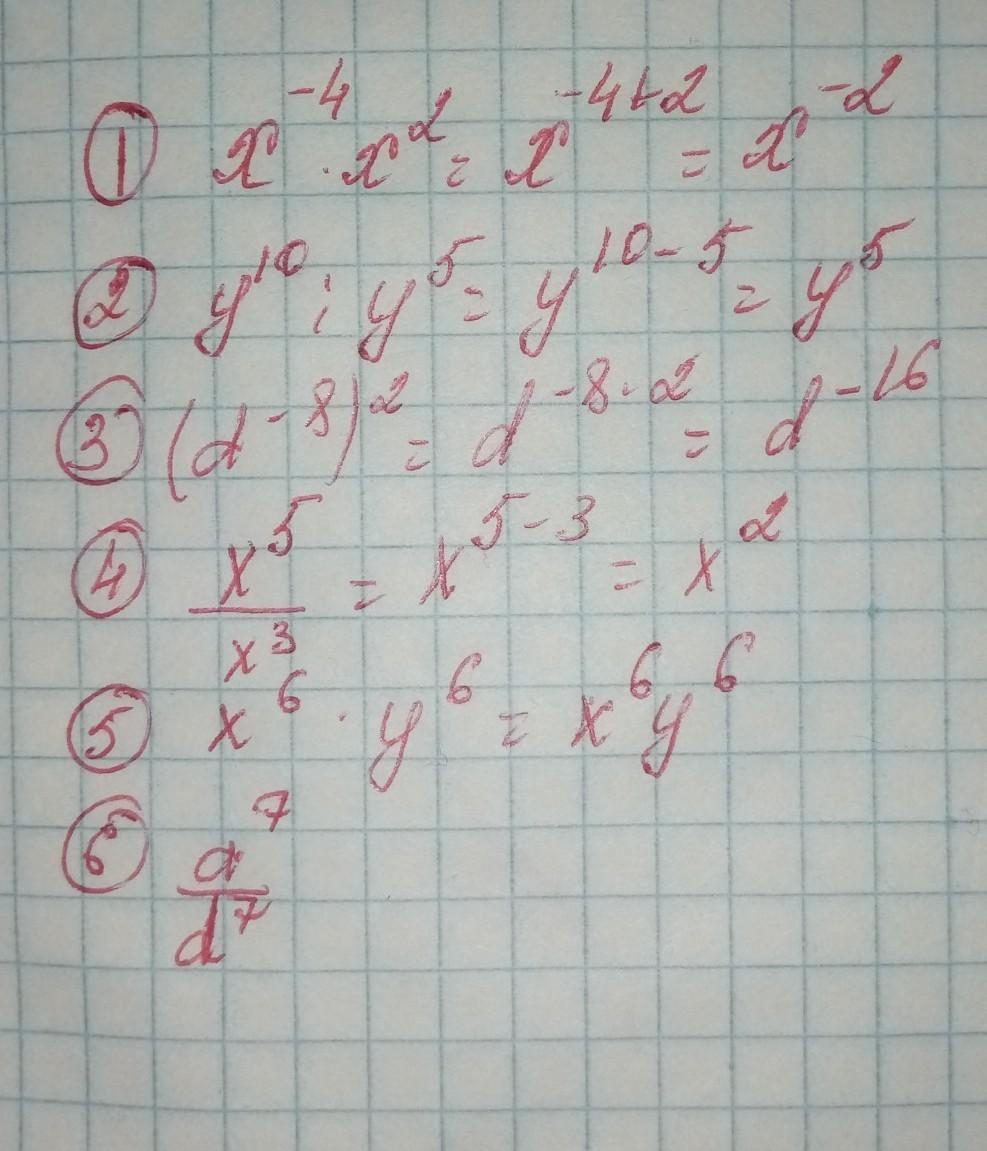 ① x⁻⁴ · x² = x⁻⁴⁺² = x⁻²
② y¹⁰ : y⁵ = y¹⁰⁻⁵ = y⁵
③ (d⁻⁸)² = d⁻⁸·² = d⁻¹⁶
④ x⁵/x³ = x⁵⁻³ = x²
⑤ x⁶ · y⁶ = x⁶y⁶
⑥ a⁷/d⁷